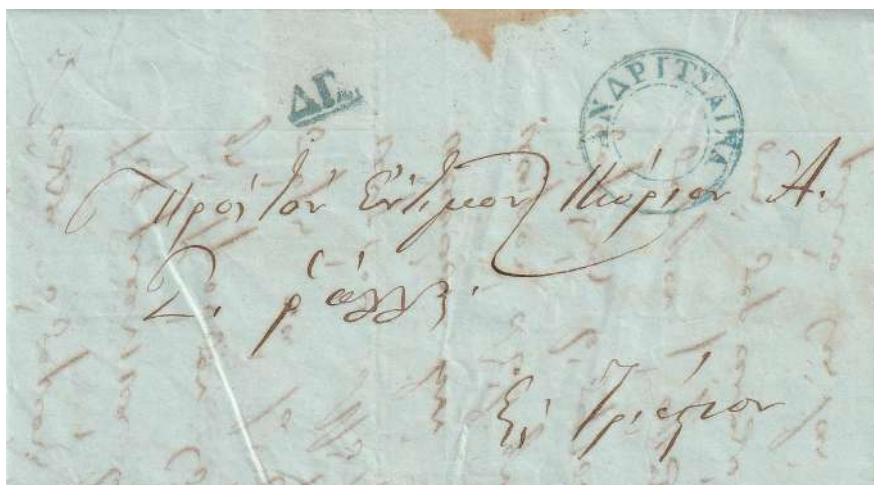 ΔΓ.
ΑΝΔΡΙΤΣΑΙΝΑ
Πρὸς τὸν Ἐντιμον Κύριον Α.
Σ. ῥάλλη.
Εἰς Τριέστιον